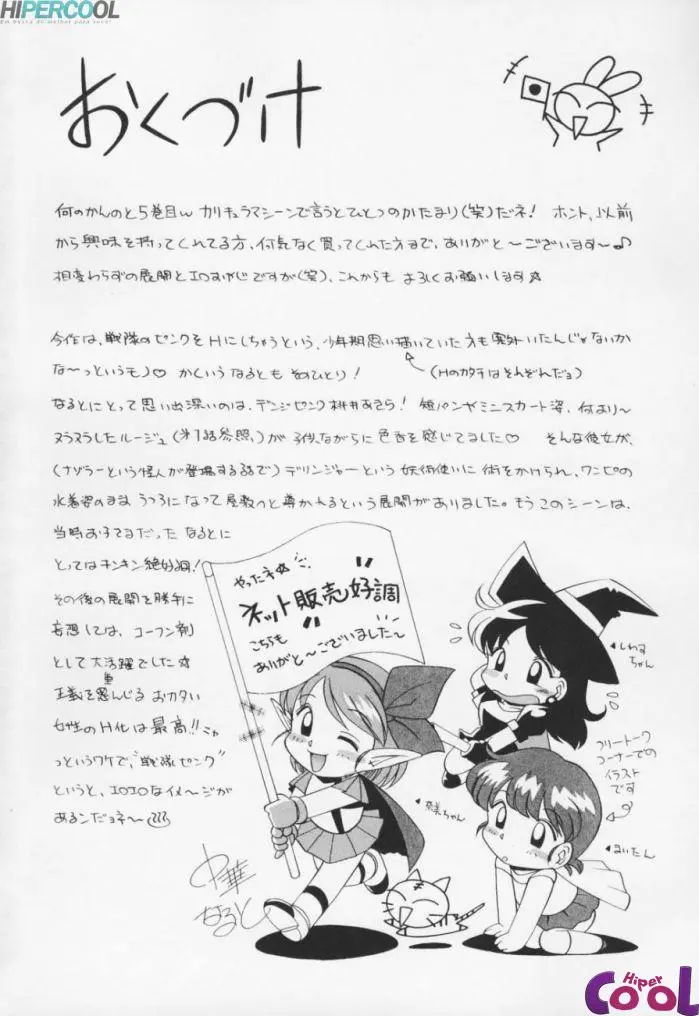 HIPERCOOL
Em busca do melhor para você!
おくづけ
何のかんのと5巻目w カリキュラマシーンで言うとひとつのかたまり(笑)だネ! ホント、以前
から興味を持ってくれてる方、何気なく買ってくれた方まで、ありがと〜ございます〜♪
相変わらずの展開とエロすかじですが(笑)、これからも よろしくお願いします☆
今作は、戦隊のピンクをHにしちゃうという、少年期思い描いていた方も案外いたんじゃないか
な〜っというもの♡ かくいうなるともそのひとり!
(Hのカタチはそれぞれだョ)
なるとにとって思い出深いのは、デンジピンク桃井あきら! 短パンやミニスカート姿、何より〜
ヌラヌラしたルージュ(第1話参照)が子供ながらに色香を感じてました♡ そんな彼女が、
(ナゾラーという怪人が登場する話で)デリンジャーという妖術使いに術をかけられ、ワンピの
水着姿のまま うつろになって屋敷へと導かれるという展開がありました。もうこのシーンは、
当時お子てまだった なるとに
とってはキンキン絶好調!
その後の展開を勝手に
妄想しては、コーフン剤
として大活躍でした☆
正義を重んじるおカタい
女性のH化は最高!!ニャ
っというワケで、"戦隊ピンク"
というと、エロエロなイメージが
あるンだョネ〜
やったネ☆
ネット販売好調
こちらも
ありがと〜ございました〜
しわすちゃん
フリートーク
コーナーでの
イラスト
です
奈美ちゃん
まいたん
中華
なると
Hiper
CooL